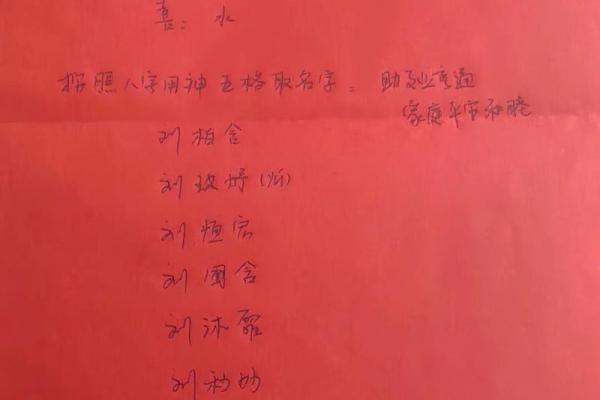 喜：水
按照八字用神五格取名字。助到业亨通
家庭平安和睦
刘柏含
刘玻婷(炘)
刘恒宏
刘围含
刘沐露
刘秒妙